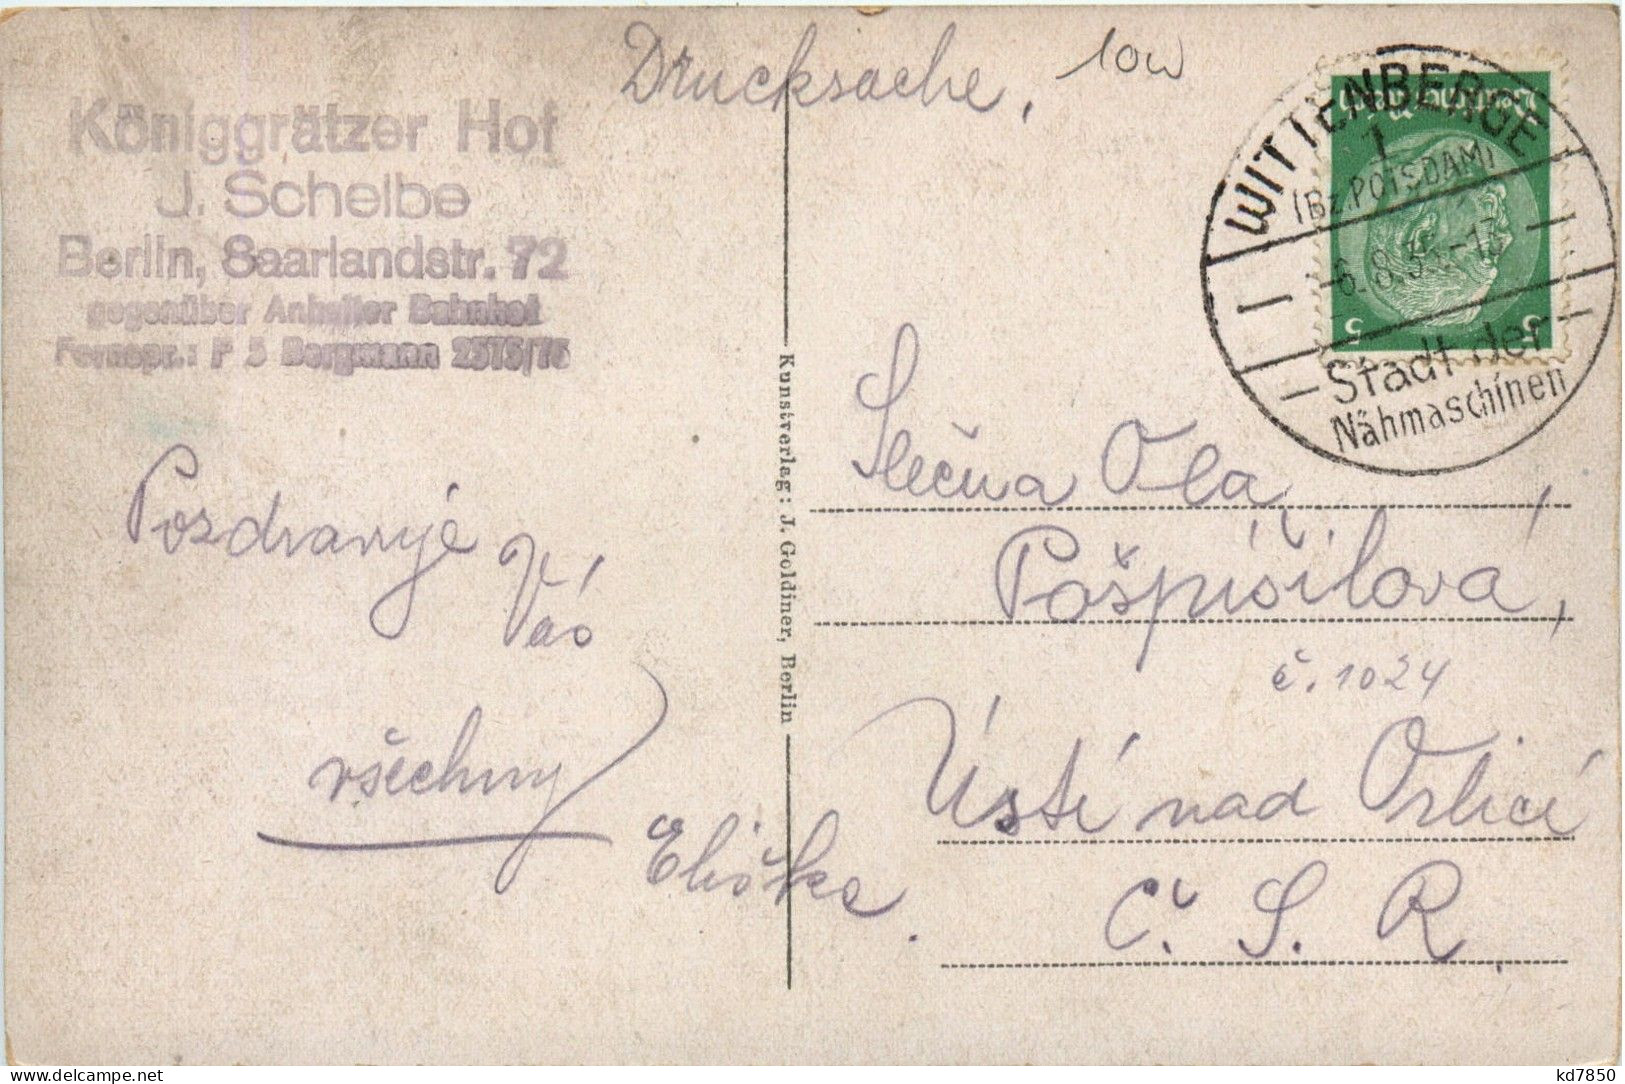 Drucksache.
10w
Königgrätzer Hof
J. Scheibe
Berlin, Saarlandstr. 72
gegenüber Anhalter Bahnhof
Fernspr.: F 5 Bergmann 2575/76
WITTENBERGE
1
(Bz. POTSDAM)
6.8.
Stadt der
Nähmaschinen
Deutsches Reich
5 5
Pozdravuje
Vás
všechny
Eliška.
Kunstverlag: J. Goldiner, Berlin
Slečna Ola
Pošpíšilová,
č. 1024
Ústí nad Orlicí
Č. S. R.
kd7850